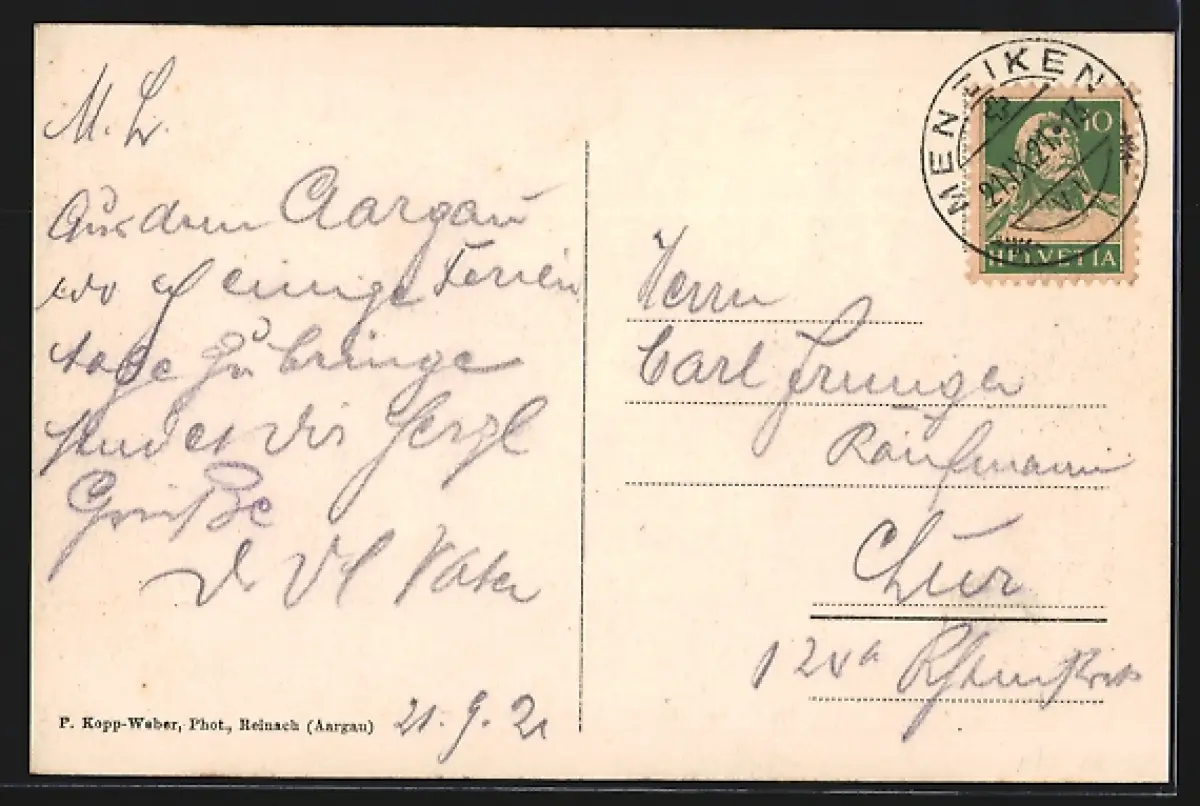 M. L.
Aus dem Aargau
wo ich einige Ferien
tage zubringe
sendet dir herzl
Grüße
Vater
P. Kopp-Weber, Phot., Reinach (Aargau)
21. 9. 21
MENZIKEN
21.IX.21.-13
10
HELVETIA
Herrn
Carl
Kaufmann
Chur